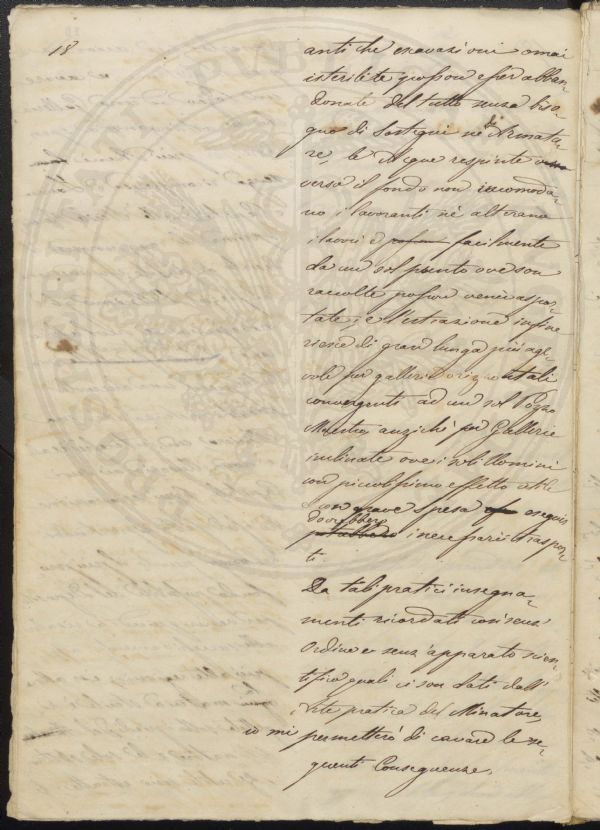 18
antiche escavazioni omai
isterilite possono esser abban-
donate del tutto senza biso-
gno di sostegni nè di Armatu-
re, le Acque respinte
verso il fondo non incomoda-
no i lavoranti nè alterano
i lavori e facilmente
da un sol punto ove son
raccolte possono venir aspor-
tate, e l'estrazione infine
riesce di gran lunga più age-
vole per gallerie orizzontali
convergenti ad un sol Pozzo
Maestro, anziché per Gallerie
inclinate ove i soli Uomini
con piccolissimo effetto utile
e con grave spesa eseguir
dovrebbero i necessarii traspor-
ti.
Da tali pratici insegna-
menti ricordati così senz'
ordine e senz'apparato scien-
tifico quali ci son dati dall'
Arte pratica del Minatore,
io mi permetterò di cavare le se-
guenti Conseguenze.